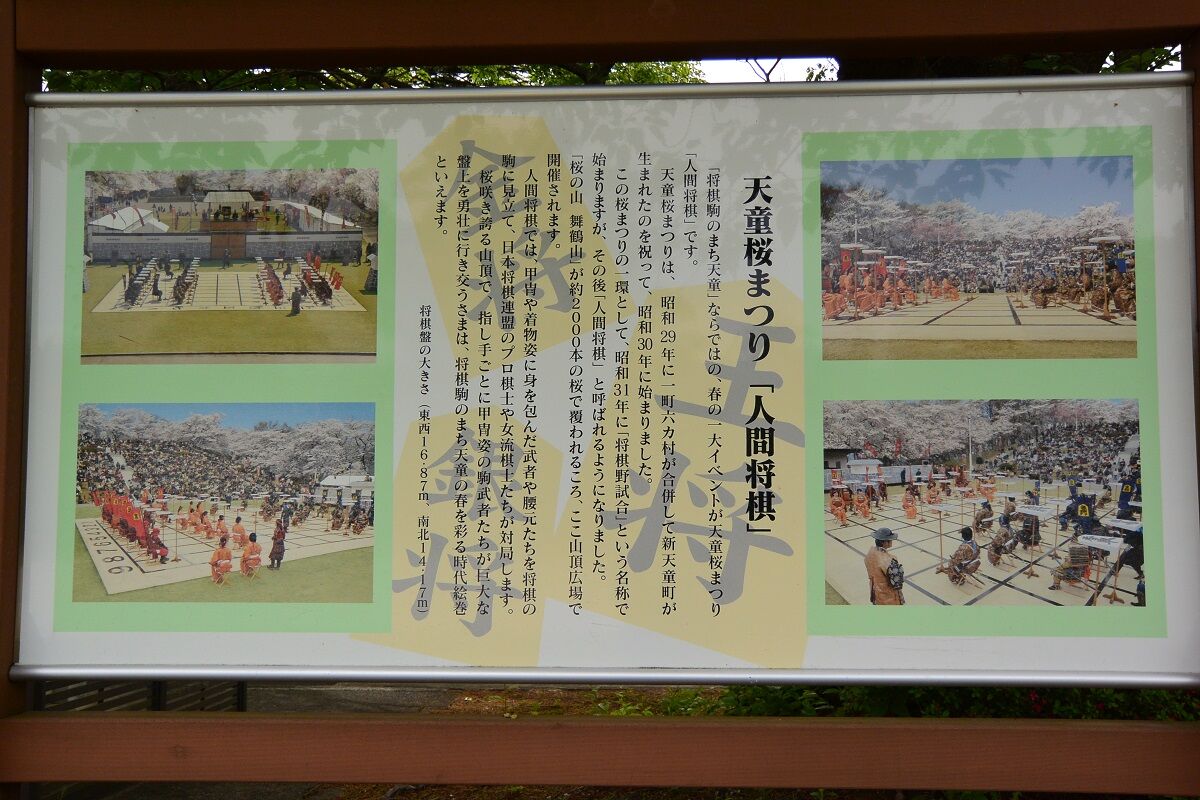 天童桜まつり「人間将棋」
「将棋駒のまち天童」ならではの、春の一大イベントが天童桜まつり
「人間将棋」です。
天童桜まつりは、昭和29年に一町六カ村が合併して新天童町が
生まれたのを祝って、昭和30年に始まりました。
この桜まつりの一環として、昭和31年に「将棋野試合」という名称で
始まりますが、その後「人間将棋」と呼ばれるようになりました。
「桜の山　舞鶴山」が約2000本の桜で覆われるころ、ここ山頂広場で
開催されます。
人間将棋では、甲冑や着物姿に身を包んだ武者や腰元たちを将棋の
駒に見立て、日本将棋連盟のプロ棋士や女流棋士たちが対局します。
桜咲き誇る山頂で、指し手ごとに甲冑姿の駒武者たちが巨大な
盤上を勇壮に行き交うさまは、将棋駒のまち天童の春を彩る時代絵巻
といえます。
将棋盤の大きさ（東西16・87m、南北14・17m）
王将
金将
銀将